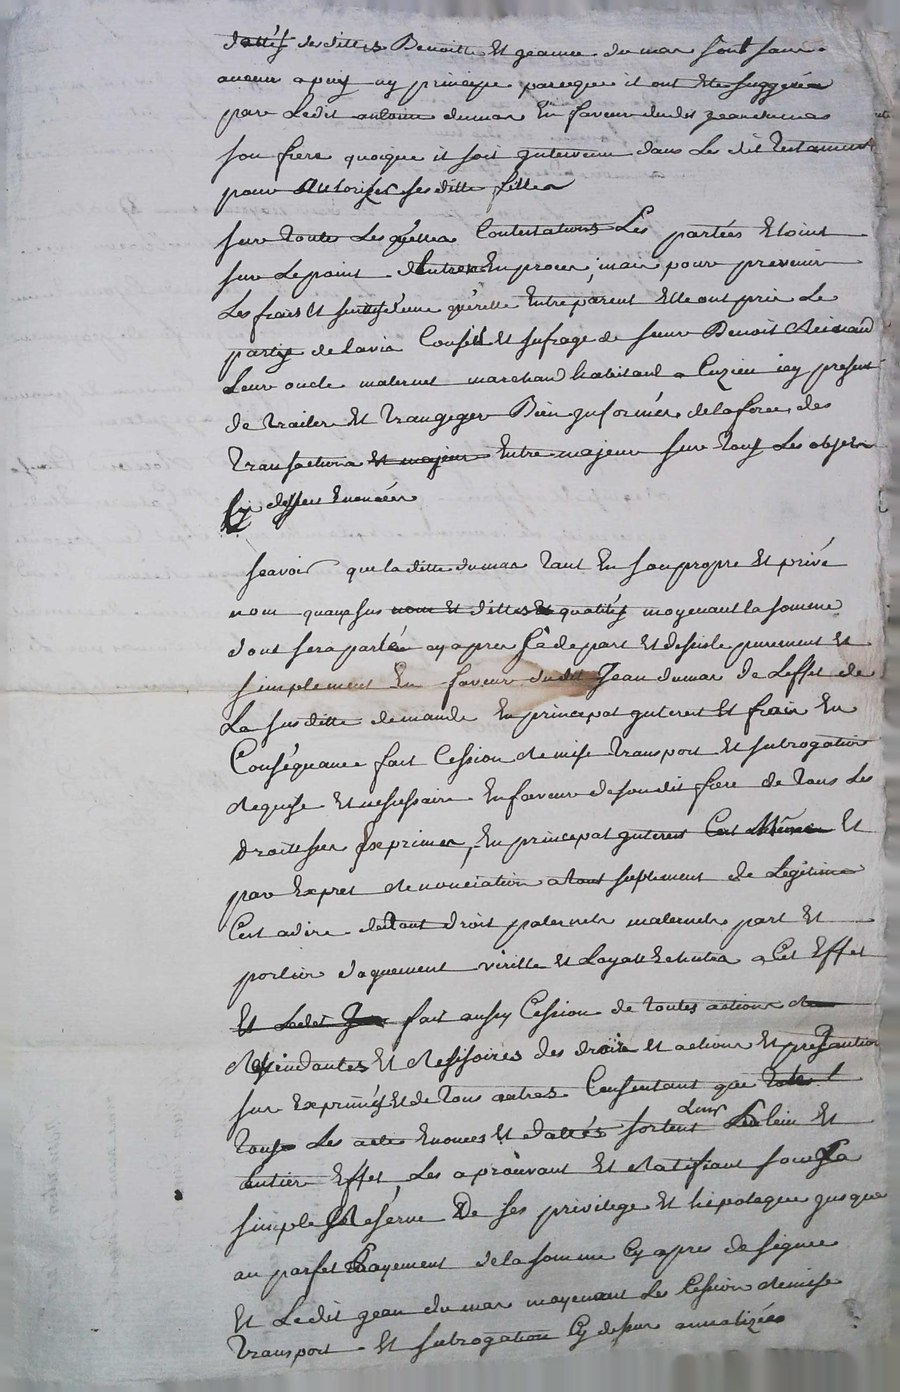 dattés desdittes Benoitte Et jeanne dumas sont sans
aucun apuis ny principe parceque il ont Ette suggerés
par Ledit antoine dumas En faveur dudit jean dumas
son frere quoique il soit jntervenu dans Le dit Testament
pour Authorizer ses ditte filles
sur toutes Lesquelles Contestations Les parties Etoint
sur Le point d'Entrer En proces, mais pour prevenir
Les frais Et suittes d'une querelle Entre parent Elle ont prié Le
partis de lavis Conseil Et sufrage de sieur Benoit
Leur oncle maternel marchand habitant a Cuzieu icy present
de Traiter Et Transiger Bien jnformés dela force des
Transactions Et majeur Entre majeur sur Tous Les objets
Cy dessus Enoncées
scavoir que laditte dumas Tant En son propre Et privé
nom quaux sus nom Et dittes Et qualités moyenant la somme
dont sera parlée cy apres sà depart Et desiste purement Et
simplement En faveur dudit Jean dumas de Leffet de
La susditte demande En principal jnterest Et frais En
Conséquance fait Cession Remise Transport Et subrogation
Requise Et necessaire En faveur de son dit frere de Tous Les
droits sus Exprimes, En principal jnterest Et
par Exprés Renonciation a tout suplement de Légitime
Cest adire de tout droit paternels maternels part Et
portion daugment virille Et Layalle Echutes a Cet Effet
Et Ledit fait aussy Cession de toutes actions
Rescindantes Et Rescisoires des droits Et actions Et pretantion
sus Exprimés Et de Tous autres Consentant que
Tous Les acte Enoncés Et dattés sortent Leur plein Et
entier Effet, Les aprouvant Et Ratifiant sous La
simple Réserve De ses privilege Et hipoteque jusque
au parfet Payement de la somme Cy apres designee
Et Ledit jean dumas moyenant Les Cession Remise
Transport Et subrogation Cy dessus annalizées